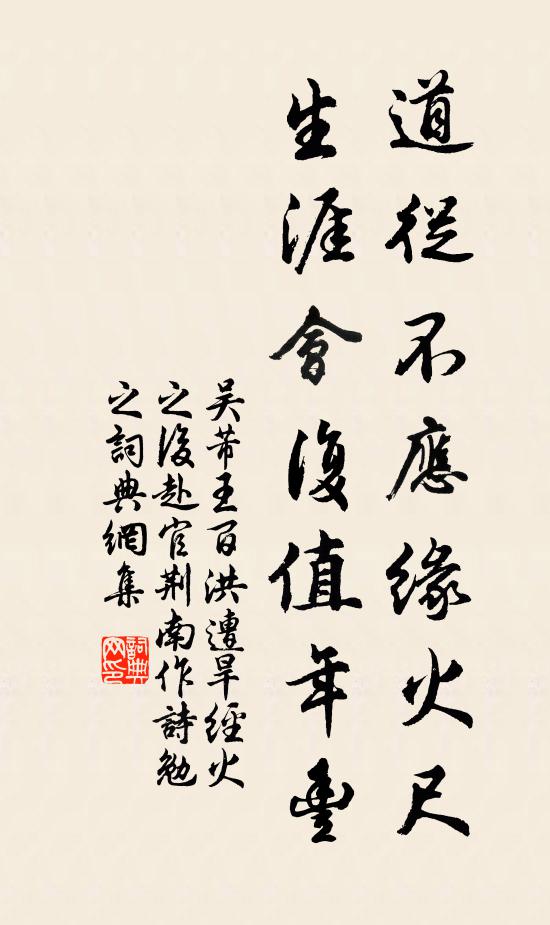 道從不應緣火尺
生涯會復值年豐
吴芾王百洪遭旱經火
之後赴官荆南作詩勉
之詞典網集
詞典
网印